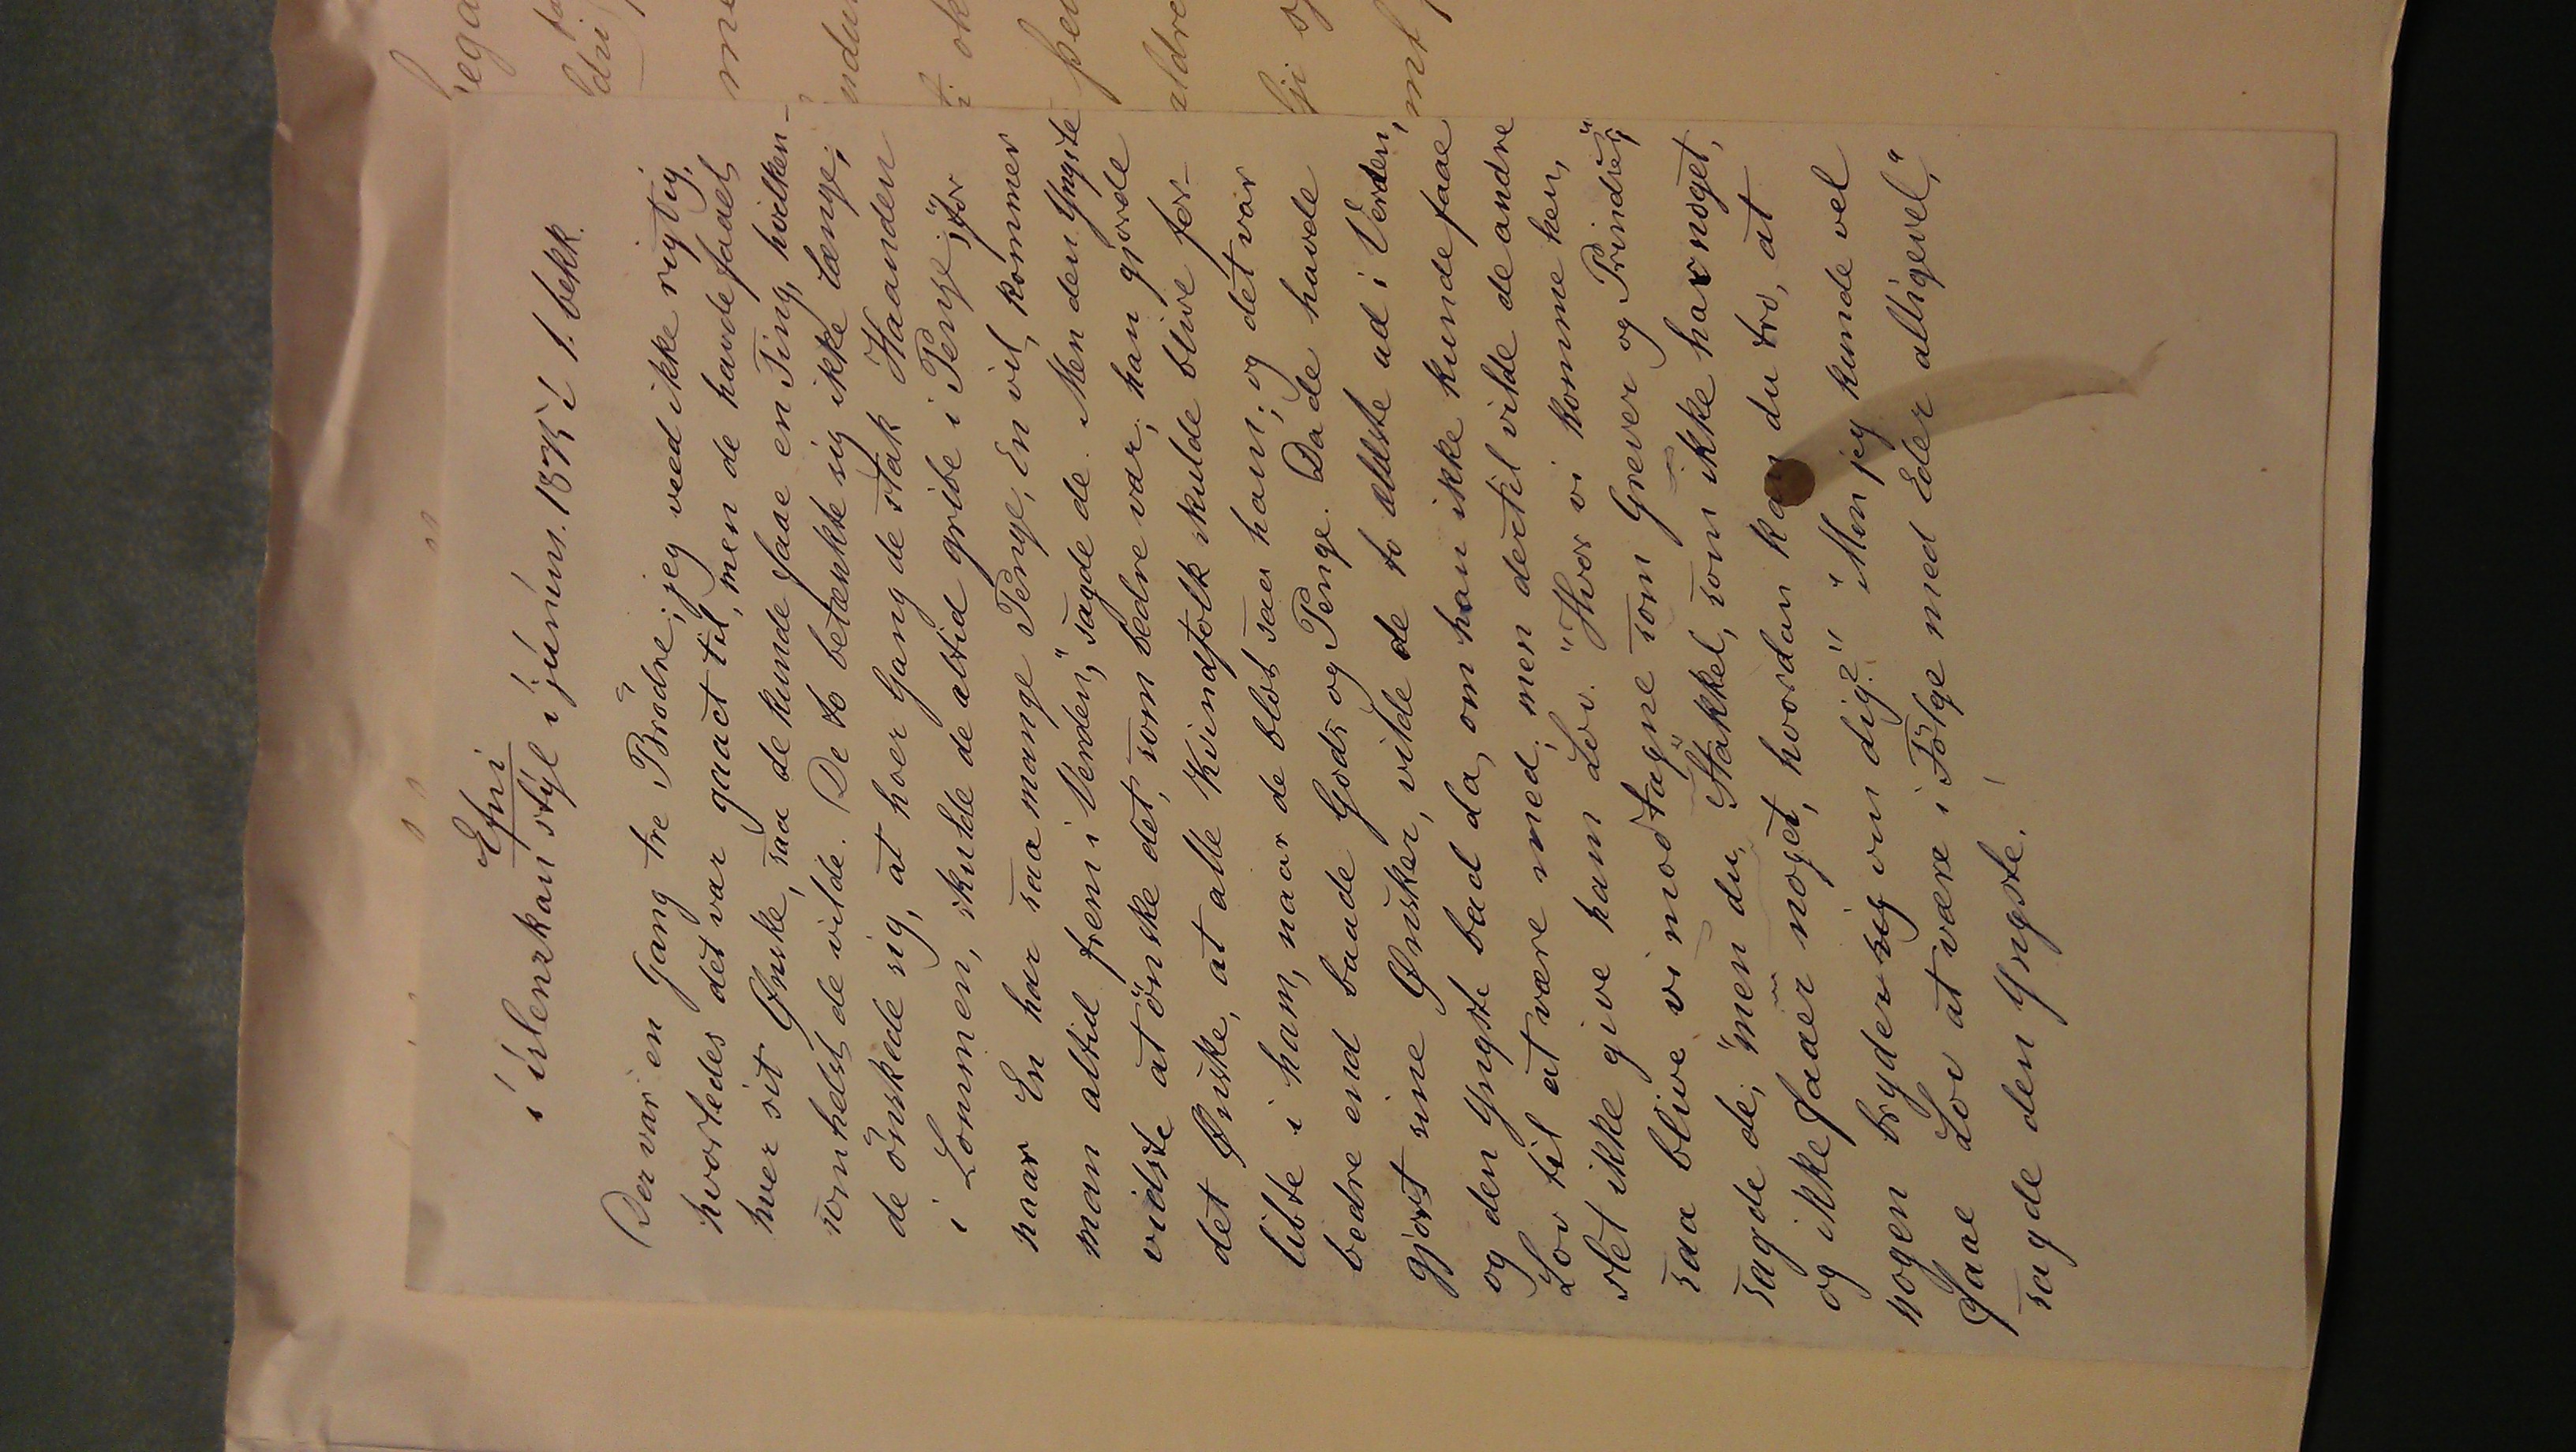 Efni
í íslenzkan stýl í júním. 1875 í 1. bekk.
Der var en Gang tre Brödre; jeg veed ikke rigtig,
hvorledes det var gaaet til, men de havde faaet
hver sit Ønske, saa de kunde faae en Ting, hvilken-
somhelst de vilde. De to betænkte sig ikke længe;
de önskede sig, at hver Gang de stak Haanden
i Lommen, skulde de altid gribe i Penge; "for
naar En har saa mange Penge, En vil, kommer
man altid frem i Verden," sagde de. Men den Yngste
vidste at önske det, som bedre var; han gjorde
det Ønske, at alle Kvindfolk skulde blive for-
libte i ham, naar de blot saa ham; og det var
bedre end baade Gods og Penge. Da de havde
gjort sine Ønsker, vilde de to ældste ud i Verden,
og den Yngste bad da, om han ikke kunde faae
Lov til at være med; men dertil vilde de andre
slet ikke give ham Lov. "Hvor vi komme hen,
saa blive vi modtagne som Grever og Prindser,"
sagde de; "men du, Stakkel, som ikke har noget,
og ikke faaer noget, hvordan kan du tro, at
nogen bryder sig om dig?" "Men jeg kunde vel
faae Lov at være i Fölge med Eder alligevel,"
sagde den Yngste.